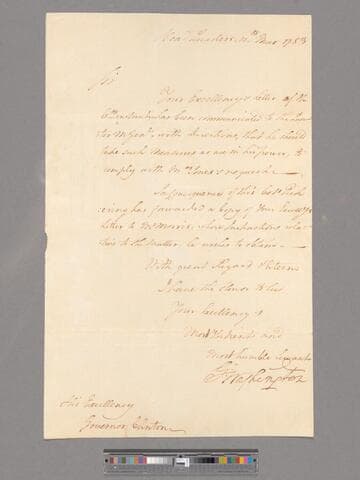 Head Quarters 10th
1783
Sir
Your Excellency's letter of the
has been communicated to the Quar
ter M Gen.l with directions, that he should
take such measures as are in his power, to
comply with Mr Jones's request.
In consequence of this Col.o Pick
ering has forwarded a Copy of Your Excellys
letter to Mr Morris, whose Instructions rela
tive to the matter he wishes to obtain.
With great Regard & Esteem
I have the Honor to be
Your Excellency's
Most Obedient and
Most humble Servant
G. Washington
His Excellency
Governor Clinton